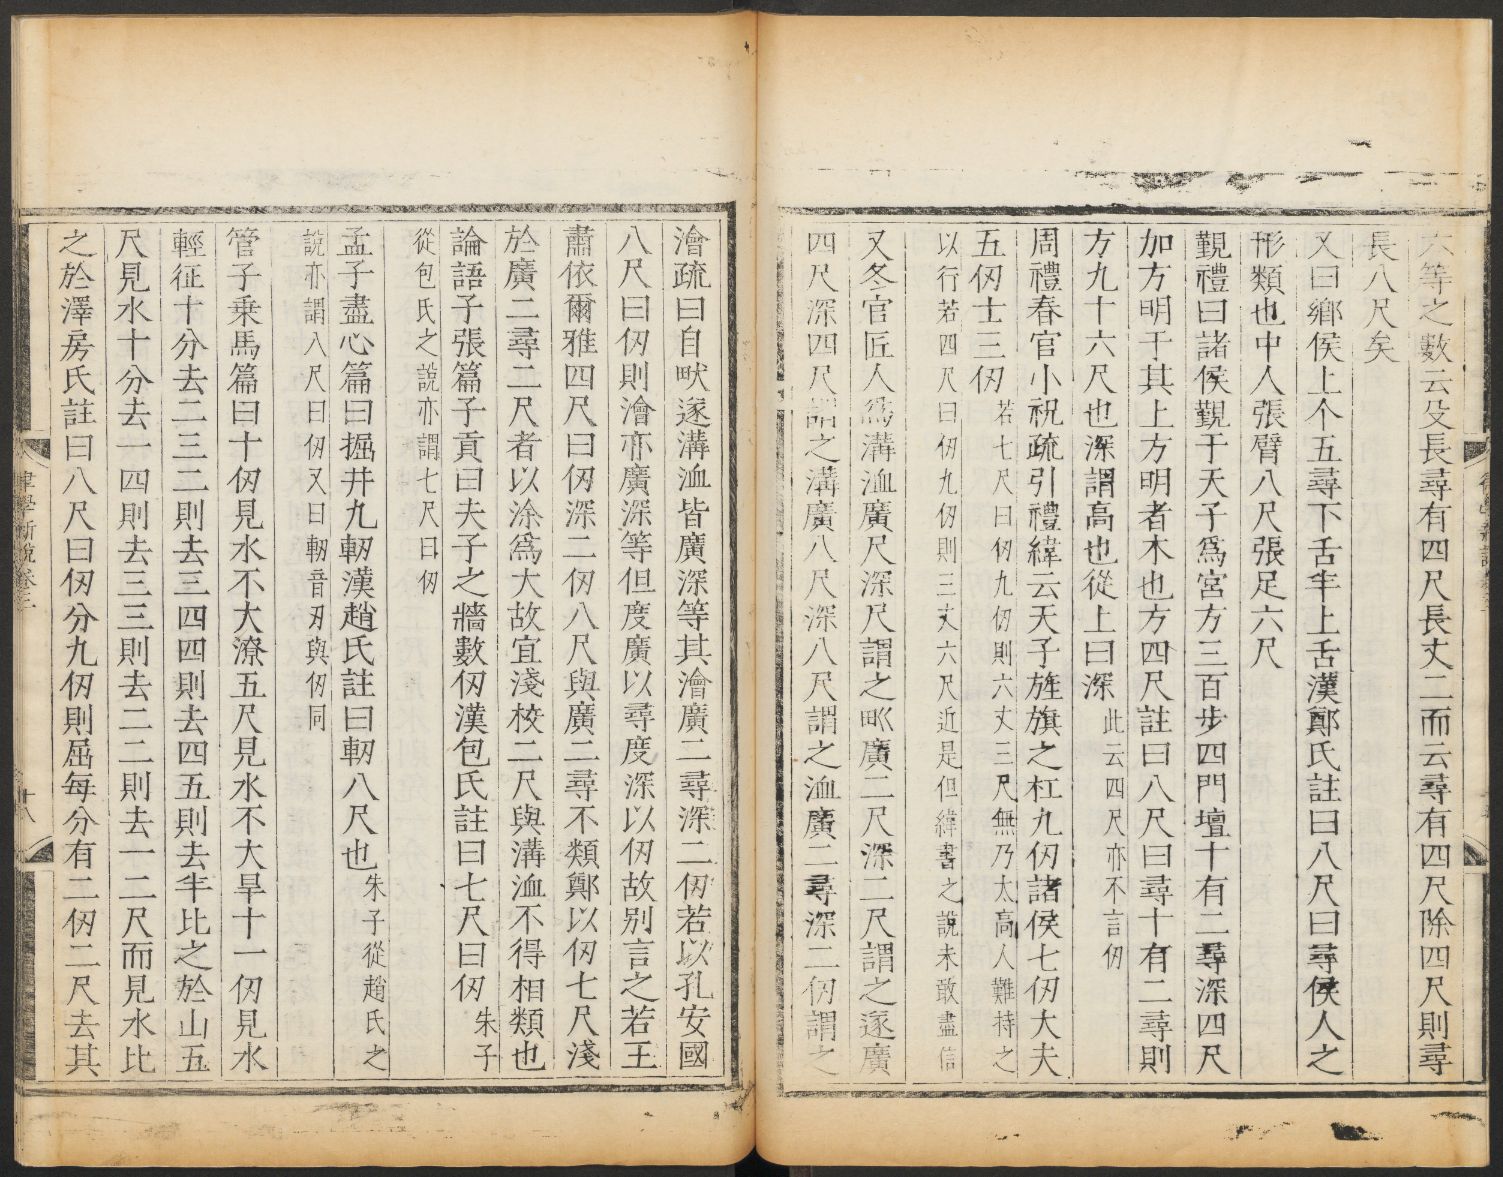 六等之數云殳長尋有四尺長丈二而云尋有四尺除四尺則尋
長八尺矣
又曰鄉侯上个五尋下舌半上舌漢鄭氏註曰八尺曰尋侯人之
形類也中人張臂八尺張足六尺
覲禮曰諸侯覲于天子爲宮方三百步四門壇十有二尋深四尺
加方明于其上方明者木也方四尺註曰八尺曰尋十有二尋則
方九十六尺也深謂高也從上曰深此云四尺亦不言仞
周禮春官小祝疏引禮緯云天子旌旗之杠九仞諸侯七仞大夫
五仞士三仞若七尺曰仞九仞則六丈三尺無乃太高人難持之
以行若四尺曰仞九仞則三丈六尺近是但緯書之說未敢盡信
又冬官匠人爲溝洫廣尺深尺謂之𤰕廣二尺深二尺謂之遂廣
四尺深四尺謂之溝廣八尺深八尺謂之洫廣二尋深二仞謂之
澮疏曰自畎遂溝洫皆廣深等其澮廣二尋深二仞若以孔安國
八尺曰仞則澮亦廣深等但度廣以尋度深以仞故别言之若王
肅依爾雅四尺曰仞深二仞八尺與廣二尋不類鄭以仞七尺淺
於廣二尋二尺者以涂爲大故宜淺校二尺與溝洫不得相類也
論語子張篇子貢曰夫子之牆數仞漢包氏註曰七尺曰仞朱子
從包氏之說亦謂七尺曰仞
孟子盡心篇曰掘井九軔漢趙氏註曰軔八尺也朱子從趙氏之
說亦謂八尺曰仞又曰軔音刃與仞同
管子乗馬篇曰十仞見水不大潦五尺見水不大旱十一仞見水
輕征十分去二三二則去三四四則去四五則去半比之於山五
尺見水十分去一四則去三三則去二二則去一二尺而見水比
之於澤房氏註曰八尺曰仞分九仞則屈每分有二仞二尺去其
律學新說卷三
十八